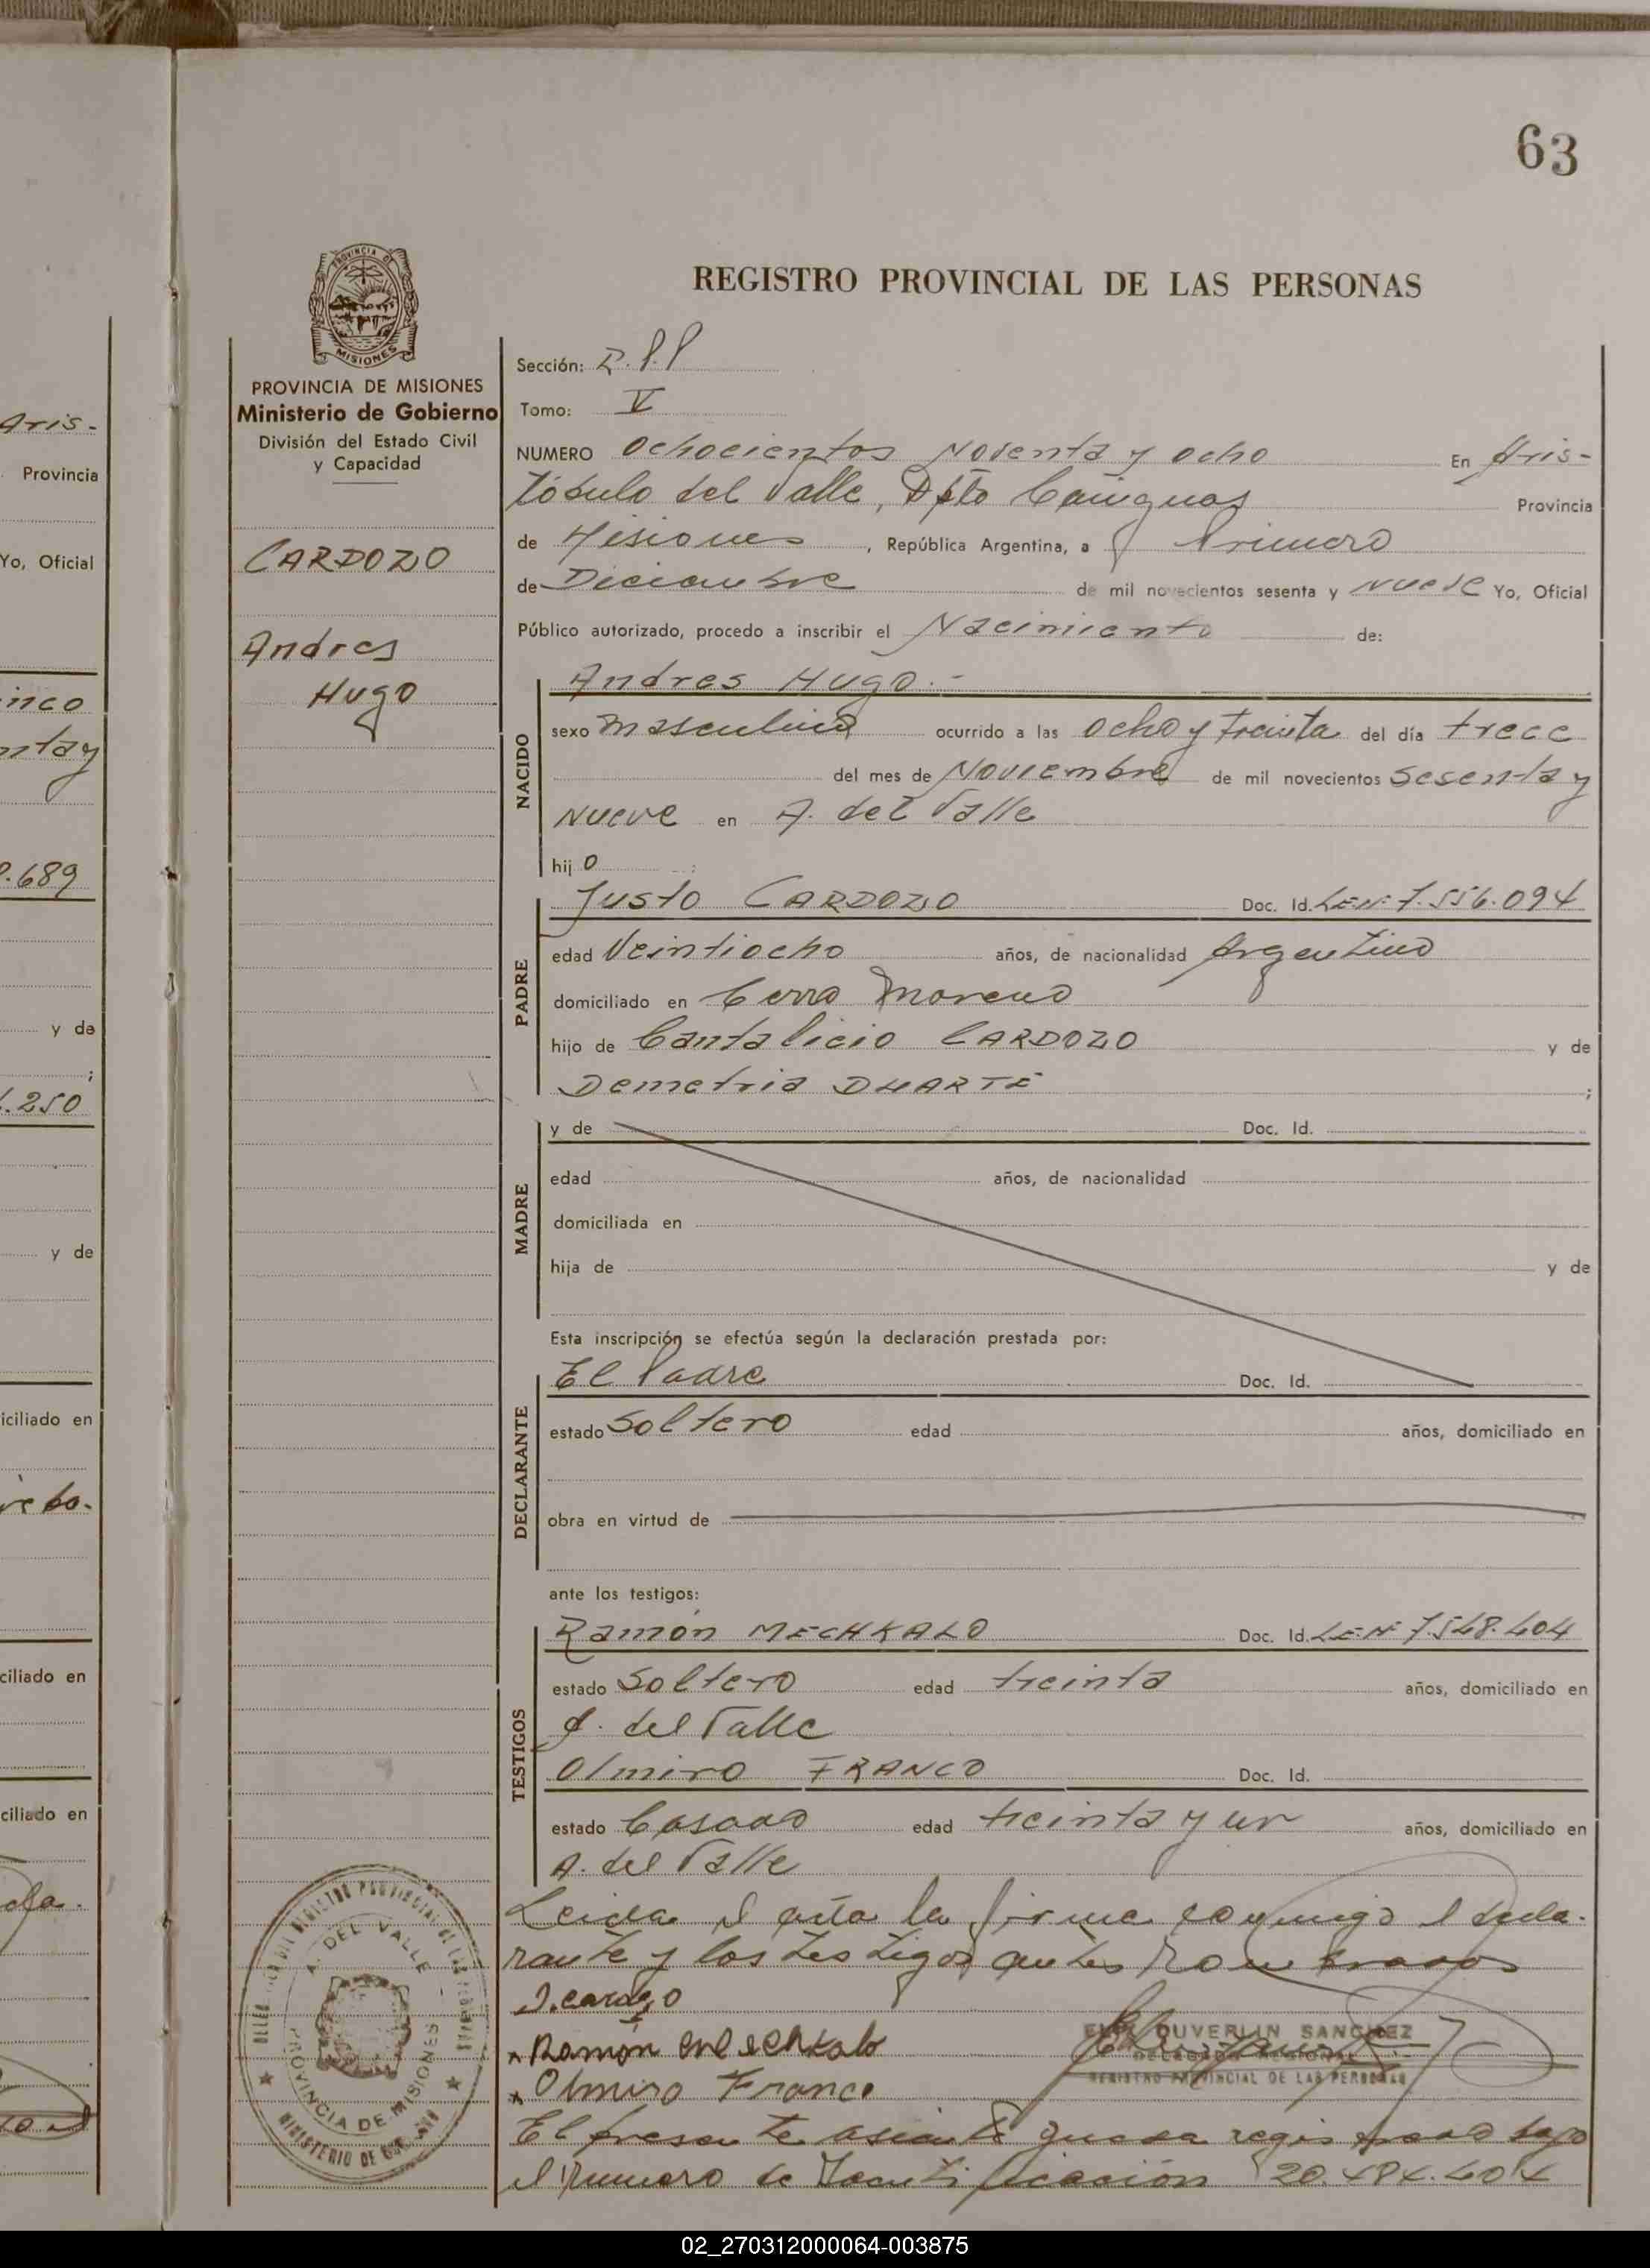 63
PROVINCIA DE
MISIONES
REGISTRO PROVINCIAL DE LAS PERSONAS
PROVINCIA DE MISIONES
Ministerio de Gobierno
División del Estado Civil
y Capacidad
CARDOZO
Andres
Hugo
Sección: R.P.P
Tomo: V
NUMERO Ochocientos Noventa y ocho En Aris-
tóbulo del Valle, Dpto Cainguas Provincia
de Misiones, República Argentina, a Primero
de Diciembre de mil novecientos sesenta y nueve Yo, Oficial
Público autorizado, procedo a inscribir el Nacimiento de:
NACIDO
Andres Hugo.-
sexo masculino ocurrido a las ocho y treinta del día trece
del mes de Noviembre de mil novecientos sesenta y
nueve en A. del Valle
hijo
PADRE
Justo CARDOZO Doc. Id. L.E.Nº 7.556.094
edad Veintiocho años, de nacionalidad Argentino
domiciliado en Cerro Moreno
hijo de Cantalicio CARDOZO y de
Demetria DUARTE ;
MADRE
y de Doc. Id.
edad años, de nacionalidad
domiciliada en
hija de y de
Esta inscripción se efectúa según la declaración prestada por:
DECLARANTE
El Padre Doc. Id.
estado Soltero edad años, domiciliado en
obra en virtud de
ante los testigos:
TESTIGOS
Ramón MECHKALO Doc. Id. L.E.Nº 7.548.404
estado Soltero edad treinta años, domiciliado en
A. del Valle
Olmiro FRANCO Doc. Id.
estado Casado edad treinta y un años, domiciliado en
A. del Valle
Leida el acta la firma conmigo el decla-
rante y los testigos antes nombrados
J. cardozo
Ramón Mechkalo
Olmiro Franco
DUVERLIN SANCHEZ
DELEGADO REGIONAL
REGISTRO PROVINCIAL DE LAS PERSONAS
El presente asiento queda registrado bajo
el numero de Identificación 20.484.404
A. DEL VALLE
PROVINCIA DE MISIONES
Aris-
Provincia
Yo, Oficial
inco
nta y
.689
y de
;
.250
y de
iciliado en
ciliado en
ciliado en
02_270312000064-003875